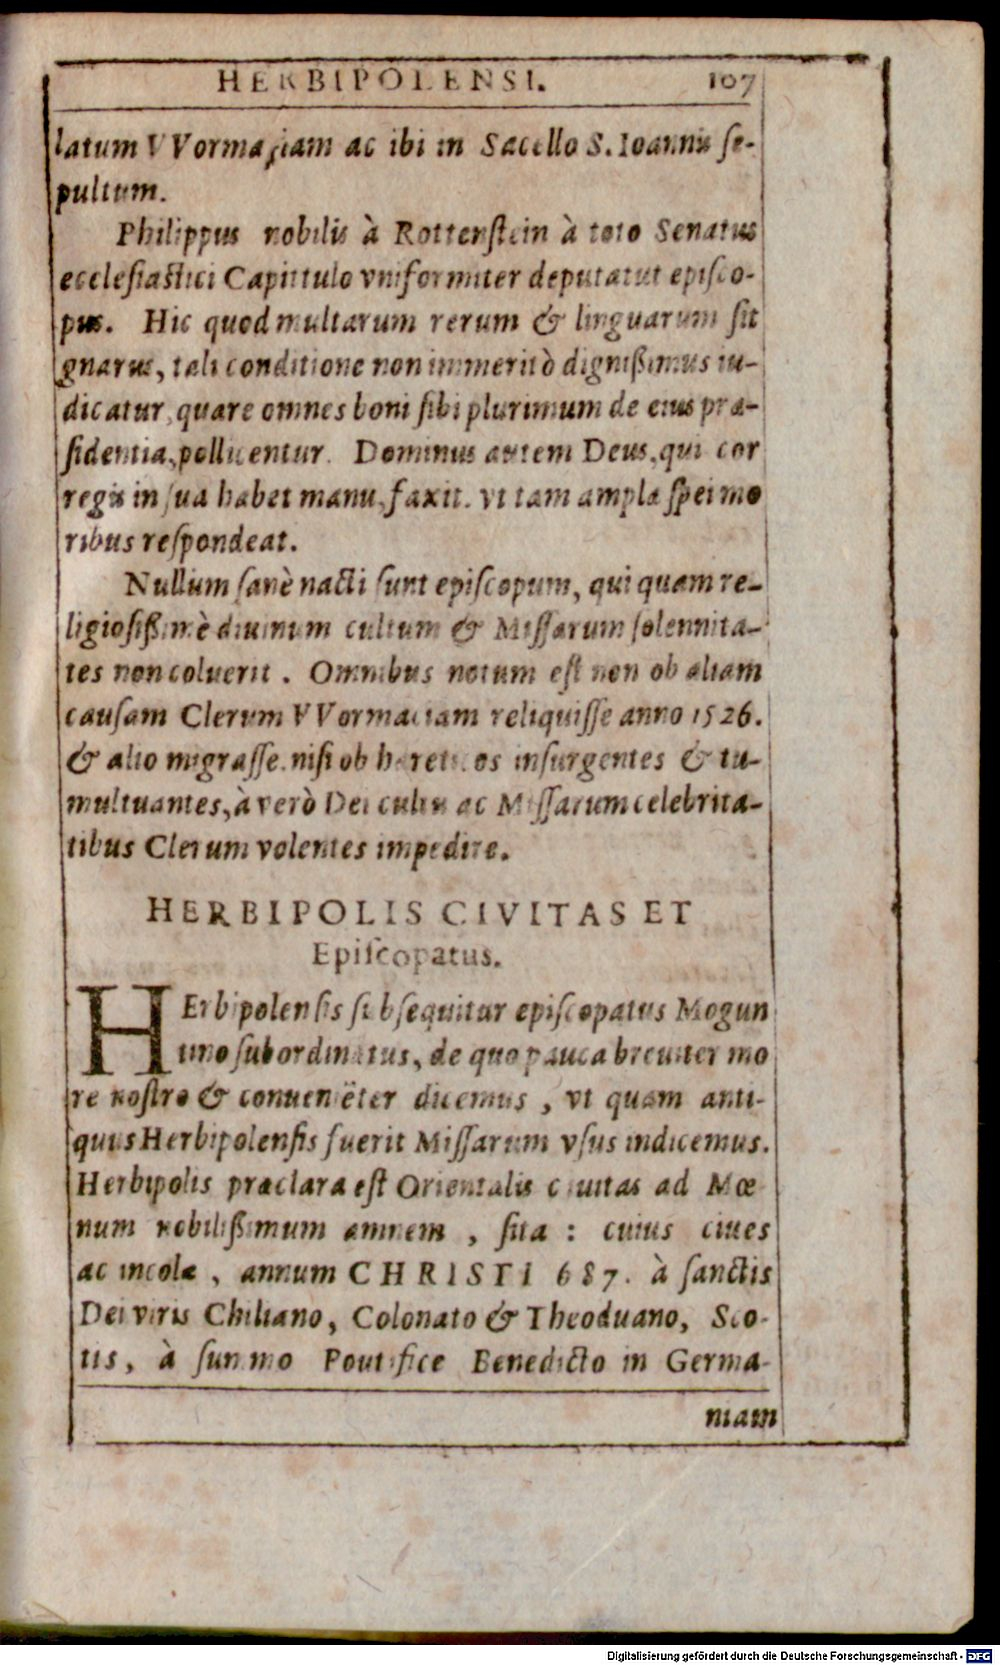 HERBIPOLENSI. 107
latum VVormaciam ac ibi in Sacello S. Ioannis se-
pultum.
Philippus nobilis à Rottenstein à toto Senatus
ecclesiastici Capittulo vniformiter deputatut episco-
pus. Hic quod multarum rerum & linguarum sit
gnarus, tali conditione non immeritò dignißimus iu-
dicatur, quare omnes boni sibi plurimum de eius præ-
sidentia, pollicentur. Dominus autem Deus, qui cor
regis in sua habet manu, faxit. vt tam amplæ spei mo
ribus respondeat.
Nullum sanè nacti sunt episcopum, qui quam re-
ligiosißimè diuinum cultum & Missarum solennita-
tes non coluerit. Omnibus notum est non ob aliam
causam Clerum VVormaciam reliquisse anno 1526.
& alio migrasse, nisi ob hæreticos insurgentes & tu-
multuantes, à verò Dei cultu ac Missarum celebrita-
tibus Clerum volentes impedire.
HERBIPOLIS CIVITAS ET
Episcopatus.
HErbipolensis subsequitur episcopatus Mogun
tino subordinatus, de quo pauca breuiter mo
re nostro & conueniëter dicemus, vt quam anti-
quus Herbipolensis fuerit Missarum vsus indicemus.
Herbipolis præclara est Orientalis ciuitas ad Mœ
num nobilißimum amnem, sita: cuius ciues
ac incolæ, annum CHRISTI 687. à sanctis
Dei viris Chiliano, Colonato & Theoduano, Sco-
tis, à summo Pontifice Benedicto in Germa-
niam
Digitalisierung gefördert durch die Deutsche Forschungsgemeinschaft - DFG